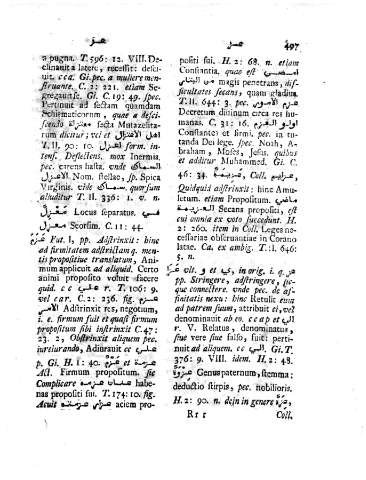 عز
عز
497
a pugna. T. 596: 12. VIII. De-
clinavit a latere, recessit: desci-
vit. c ca. Gi. pec. a muliere men-
struante. C. 2: 221. etiam Se-
gregavit se. Gi. C. 19: 49. spec.
Pertinuit ad sectam quamdam
Schismaticorum, quae a desci-
scendo معتزلة secta Mutazelita-
rum dicitur; vel et اهل الاعتزال
T. II. 90: 10. اعزل form. in-
tens. Deflectens. mox Inermis.
pec. carens hasta, unde السماك
الاعزل Nom. stellae, sp. Spica
Virginis. vide سماك quorsum
aluditur T. II. 336: 1. v. n.
معزل Locus separatus. في
معزل Seorsim. C. 11: 44
عزم Fut. I, pp. Adstrinxit: hinc
ad firmitatem adstrictam q. men-
tis propositive translatum, Ani-
mum applicuit ad aliquid. Certo
animi proposito voluit facere
quid. c c على r. T. 106: 9.
vel car. C. 2: 236. fig. عزم
الامر Adstrinxit res, negotium,
i. e. firmum fuit et quasi firmum
propositum sibi instrinxit C. 47:
23. 2, Obstrinxit aliquem pec.
jurejurando, Adjuravit cc على
p. Gi. H. I: 40. عزم et عزمة
Act. Firmum propositum. sic
Complicare عنان عزمه habe-
nas propositi sui. T. 174: 10. fig.
Acuit عزمه aciem pro-
positi sui. H. 2: 68. n. etiam
Constantia, quae est امضى
من السنان magis penetrans, dif-
ficultates secans, quam gladius.
T. II. 644: 3. pec. عزم الامور
Decretum divinum circa res hu-
manas. C. 31: 16. اولو العزم
Constantes et firmi, pec. in tu-
tanda Dei lege. spec. Noah, A-
braham, Moses, Jesus, quibus
et additur Muhammed. Gi. C.
46: 34. عزيمة, Coll. عزايم,
Quidquid adstrinxit: hinc Amu-
letum. etiam Propositum. ماضي
العزيمة Secans propositi, est
cui omnia ex voto succedunt. H.
2: 260. item in Coll. Leges ne-
cessariae observantiae in Corano
latae. Ca. ex ambig. T. II. 646:
5. n.
عزا ult. و et ي, in orig. i. q.
pp. Stringere, adstringere, fir-
que connectere. unde pec. de af-
finitatis nexu: hinc Retulit eum
ad patrem suum, attribuit ei, vel
denominavit ab eo. c c a p et الى
r. V. Relatus, denominatus,
sive vere sive falso, fuit: perti-
nuit ad aliquem. cc الى. Gi. T.
376: 9. VIII. idem. H. 2: 48.
عزوة Genus paternum, stemma:
deductio stirpis, pec. nobilioris.
H. 2: 90. n. dein in genere عزوة,
R r r
Coll.